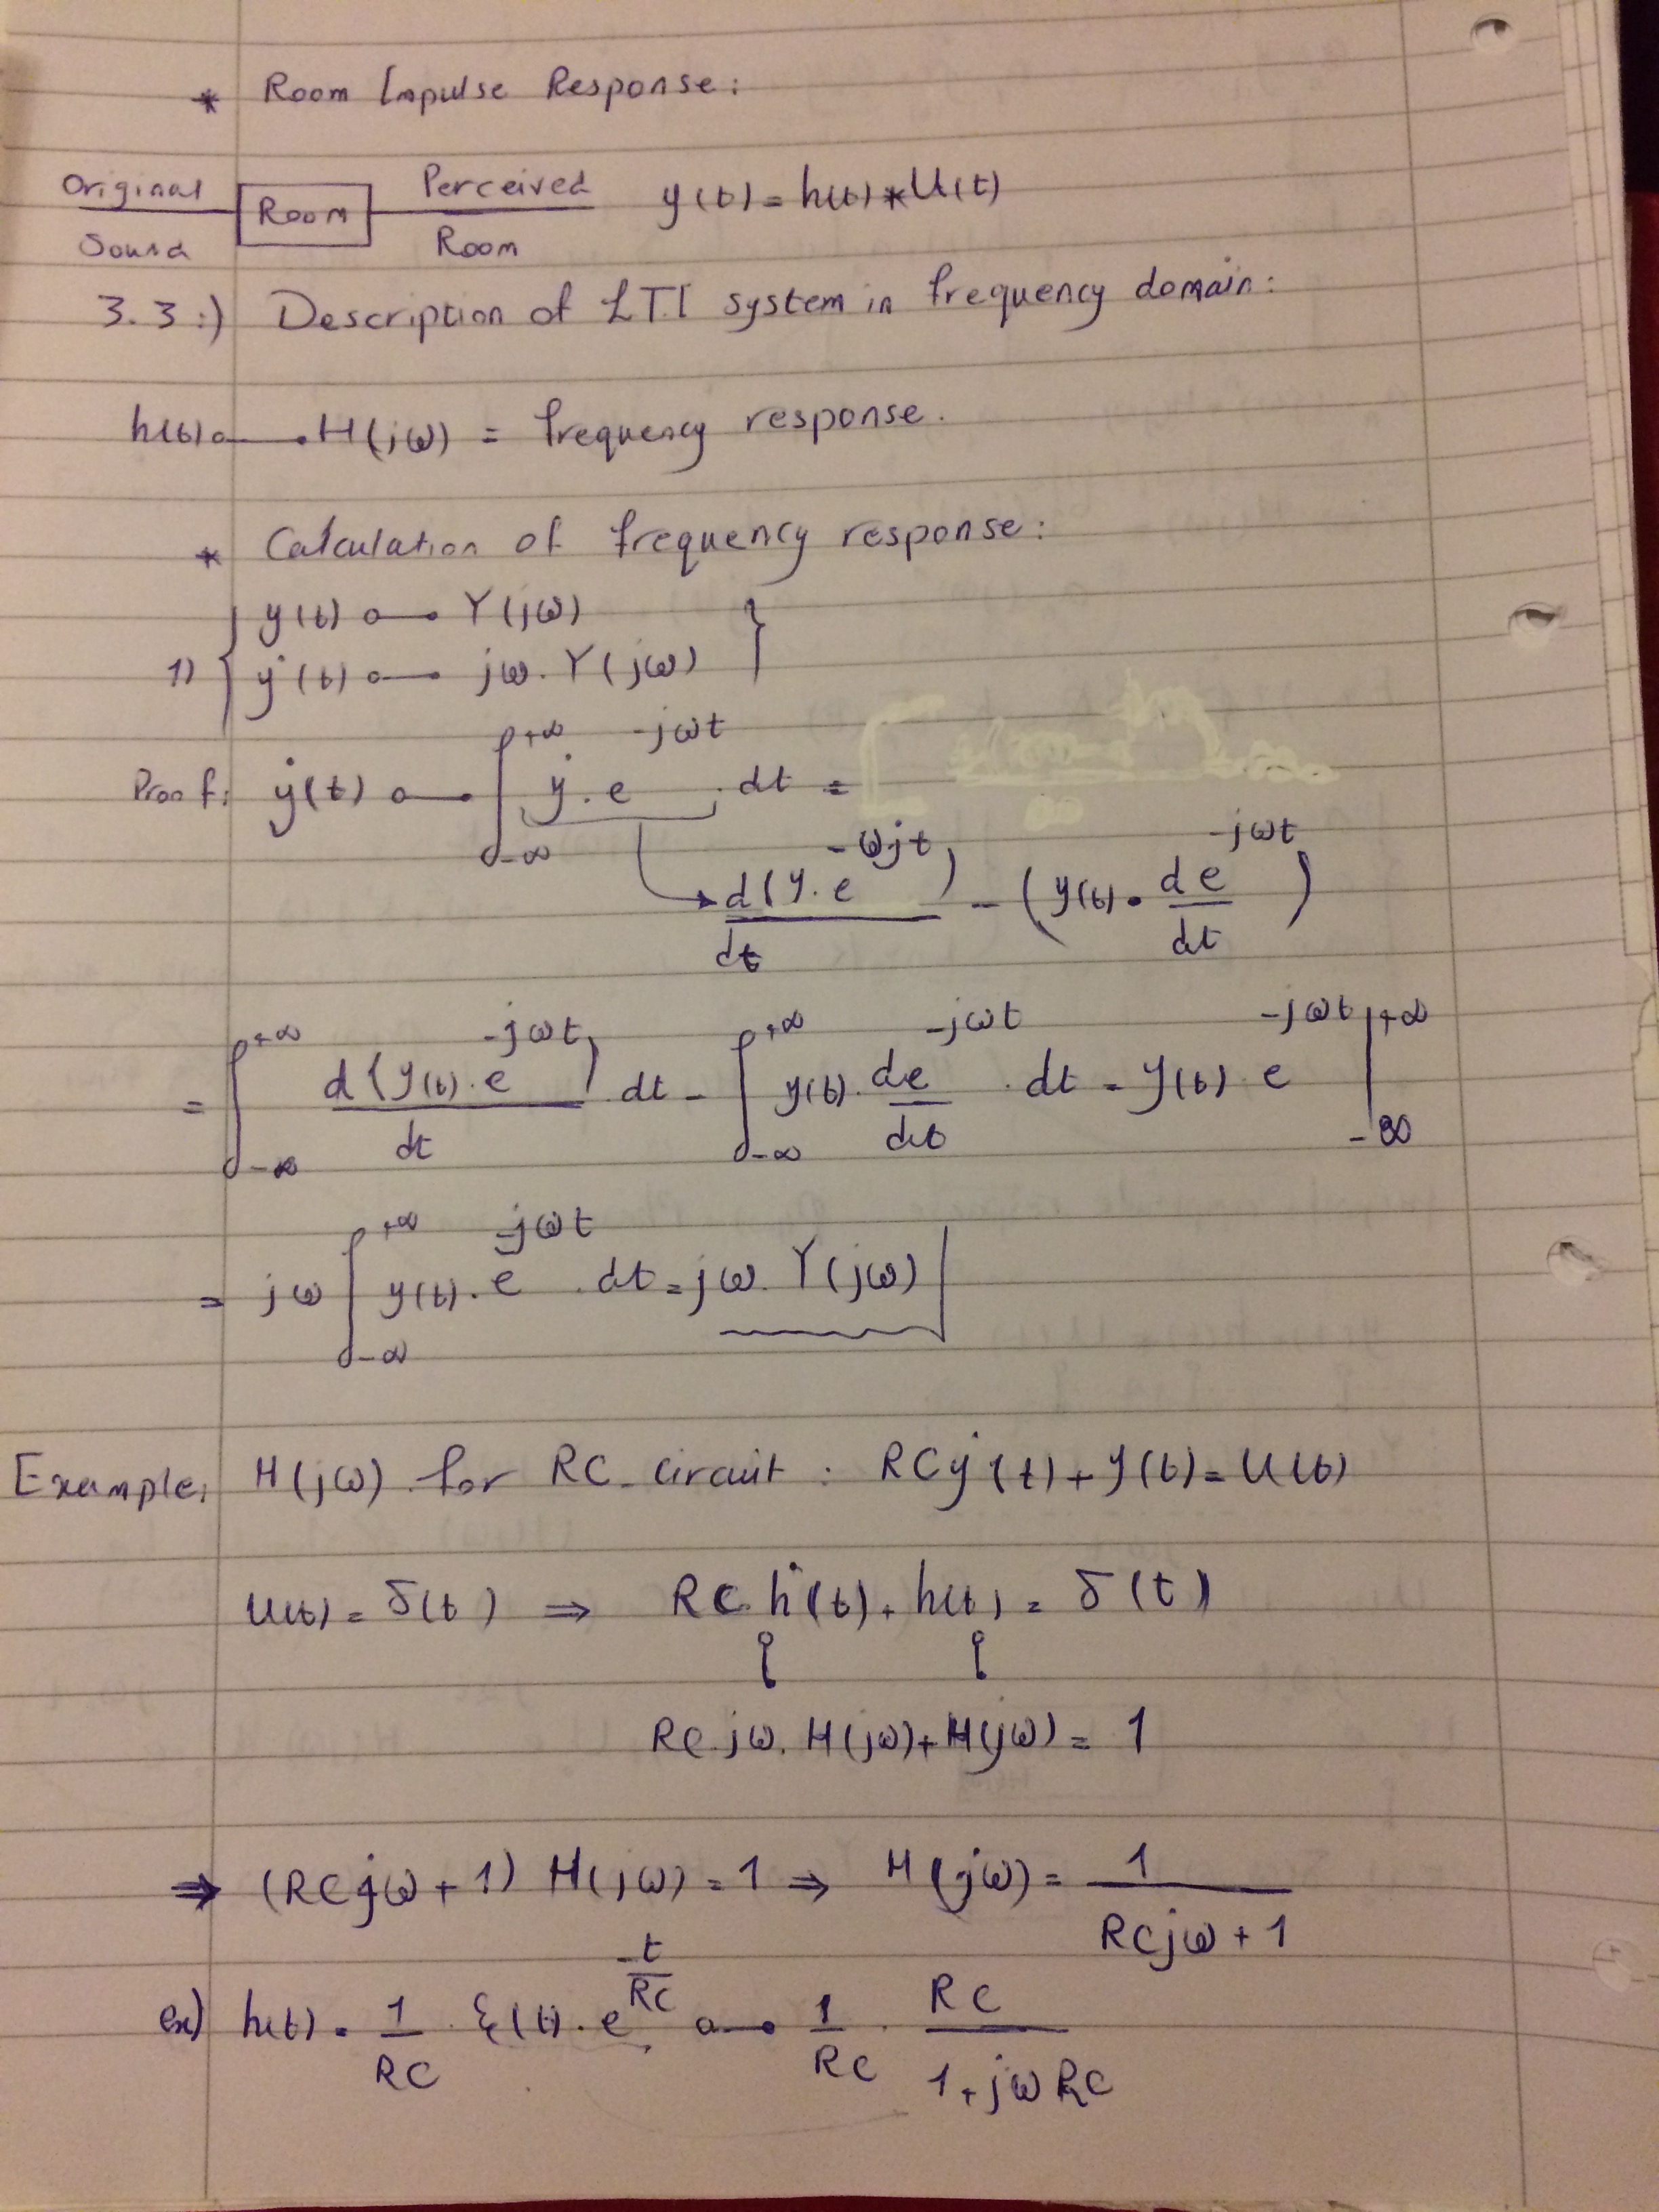 * Room Impulse Response:
Original Sound Room Perceived Room y(t) = h(t) * U(t)
3.3:) Description of LTI system in frequency domain:
h(t) o—• H(jω) = frequency response.
* Calculation of frequency response:
1) { y(t) o—• Y(jω)
ẏ(t) o—• jω. Y(jω) }
Proof: ẏ(t) o—• ∫_{-∞}^{+∞} ẏ . e^{-jωt} . dt =
d(y. e^{-ωjt})/dt - (y(t) . de^{-jωt}/dt)
= ∫_{-∞}^{+∞} d(y(t) . e^{-jωt})/dt dt - ∫_{-∞}^{+∞} y(t) . de^{-jωt}/dt . dt = y(t) . e^{-jωt} |_{-∞}^{+∞}
= jω ∫_{-∞}^{+∞} y(t) . e^{-jωt} . dt = jω. Y(jω)
Example: H(jω) for RC-circuit : RCẏ(t) + y(t) = U(t)
U(t) = δ(t) ⇒ RC.ḣ(t) + h(t) = δ(t)
RC.jω. H(jω) + H(jω) = 1
⇒ (RCjω + 1) H(jω) = 1 ⇒ H(jω) = 1/(RCjω + 1)
ex) h(t) = 1/RC . ξ(t) . e^{-t/RC} o—• 1/RC . RC/(1 + jωRC)